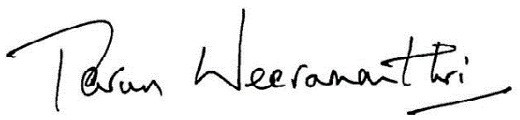 Tarun Weeramanthri